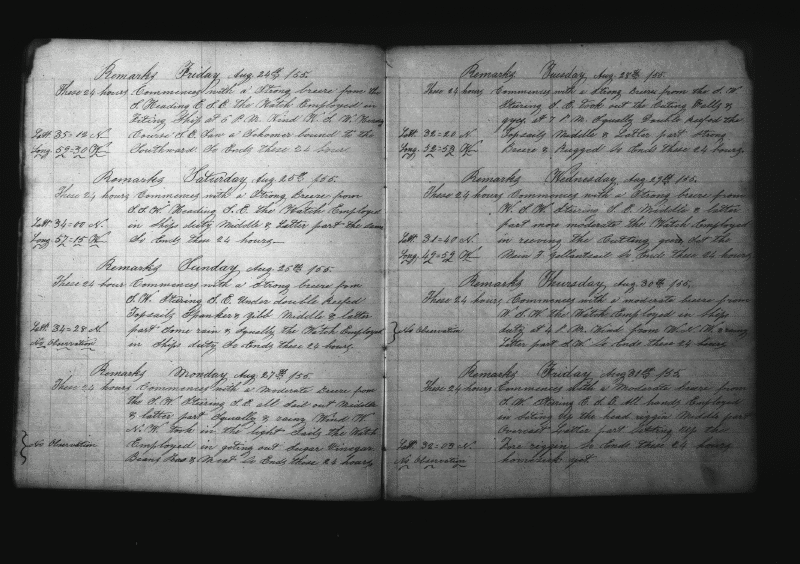 Remarks Friday Aug 24th /55.
These 24 hours Commences with a Strong breeze from the
S Heading E.S.E. the Watch Employed in
Fiting Ship at 6 P.M. Wind W.S.W.
Latt 35=12 N. Course S.E. Saw a Schomer bound to the
Long 59=30 W Southward So Ends these 24 hour
Remarks Saturday Aug 25th /55.
These 24 hours Commences with a Strong Breeze from
S.S.W. Heading S.E. the Watch Employed
Latt 34=00 N in Ships duty Middle & Latter part the same
Long 57=15 W So Ends these 24 hours
Remarks Sunday Aug 25th /55.
These 24 hour Commences with a Strong breeze from
S.W. Stering S.E. Under double Reefed
Topsails Spanker & Gibb Middle & latter
Latt 34=28 N part Some rain & Squally the Watch Employed
No Observation in Ships duty So Ends these 24 hours
Remarks Monday Aug 27th /55.
These 24 hours Commences with a Moderate breeze from
the S.W. Stering S.E. all Sail out Middle
& latter part Squally & rainy Wind W.
N.W. Took in the light Sails the Watch
No Observation Employed in goting out Sugar Vinegar
Beans Peas & Meat So Ends these 24 hours
Remarks Tuesday Aug 28th /55.
These 24 hours Commences with a Strong breeze from the S.W.
Stering S.E. Took out the Cuting Falls &
Latt 32=20 N. guys, at 7 P.M. Squally Double Reefed the
Topsails Middle & Latter part Strong
Long 52=58 W Breeze & Rugged So Ends these 24 hours
Remarks Wednesday Aug 29th /55.
These 24 hours Commences with a Strong breeze from
W.S.W. Stering S.E. Middle & latter
part more moderate the Watch Employed
Latt 31=40 N in reeving the Cutting gear, Set the
Long 49=59 W Main T Gallantsail So Ends these 24 hours
Remarks Thursday Aug 30th /55.
These 24 hours Commences with a moderate breeze from
W.S.W. the Watch Employed in Ships
No Observation duty at 4 P.M. Wind from W.N.W.
Latter part S.W. So Ends these 24 hours
Remarks Friday Aug 31th /55.
These 24 hours Commences with a Moderate breeze from
S.W. Stering E.S.E. All hands Employed
in Siting up the head riggin Middle part
Overcast Latter part Siting Up the
Latt 32=03 N. Fore riggin So Ends these 24 hours
No Observation homesick yet